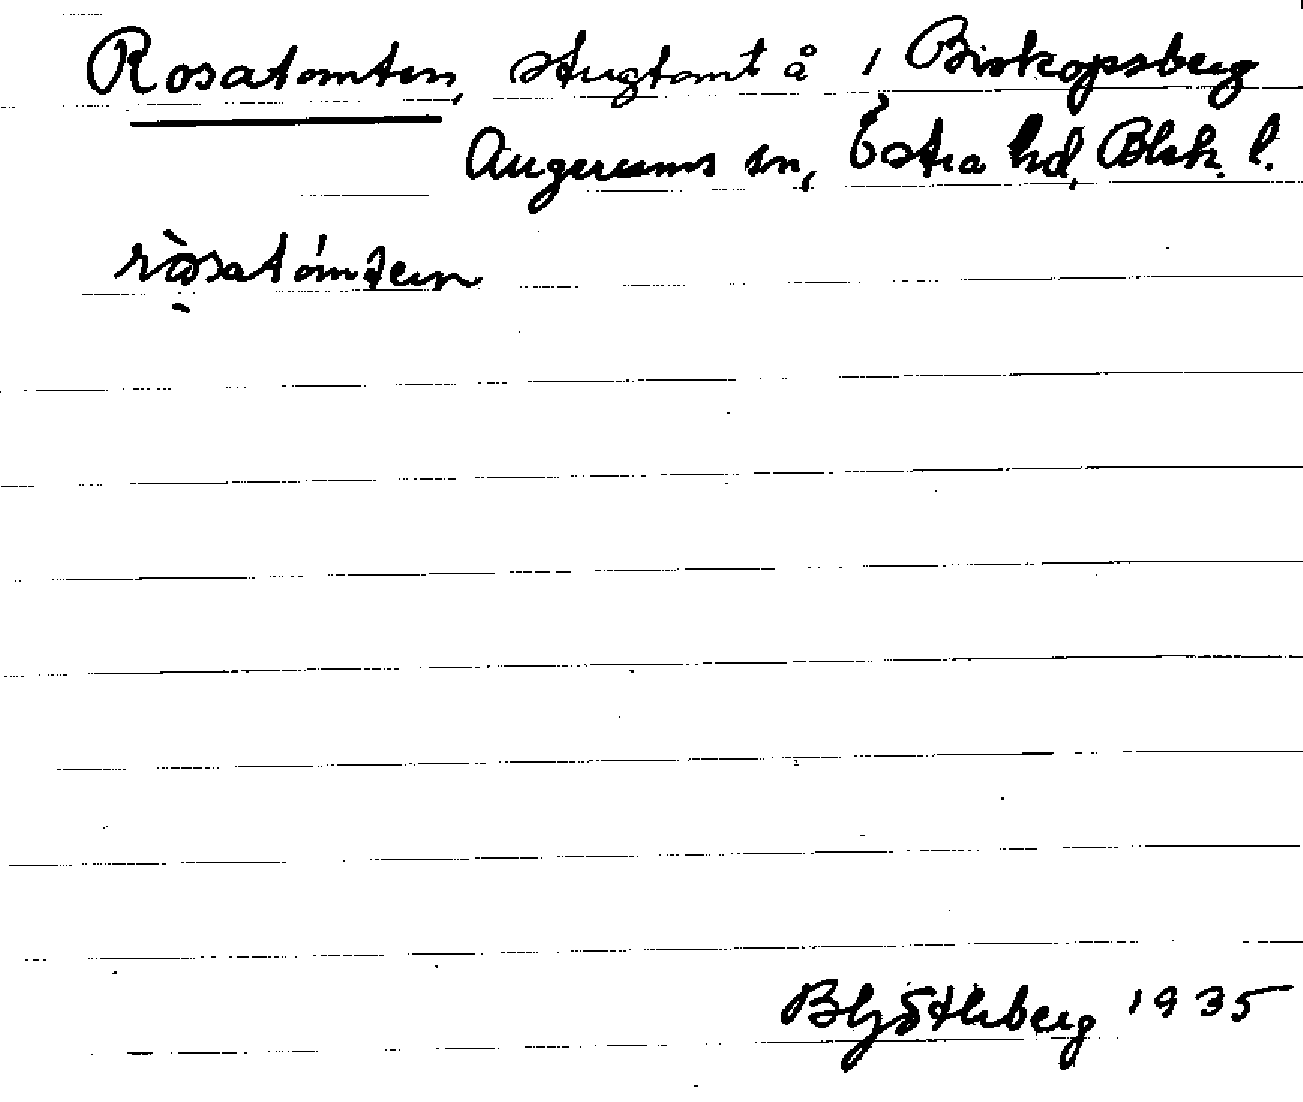 Rosatomten, stugtomt å 1 Biskopsberg
Augerums sn, Östra hd, Blek. l.
ròsatómten
1935